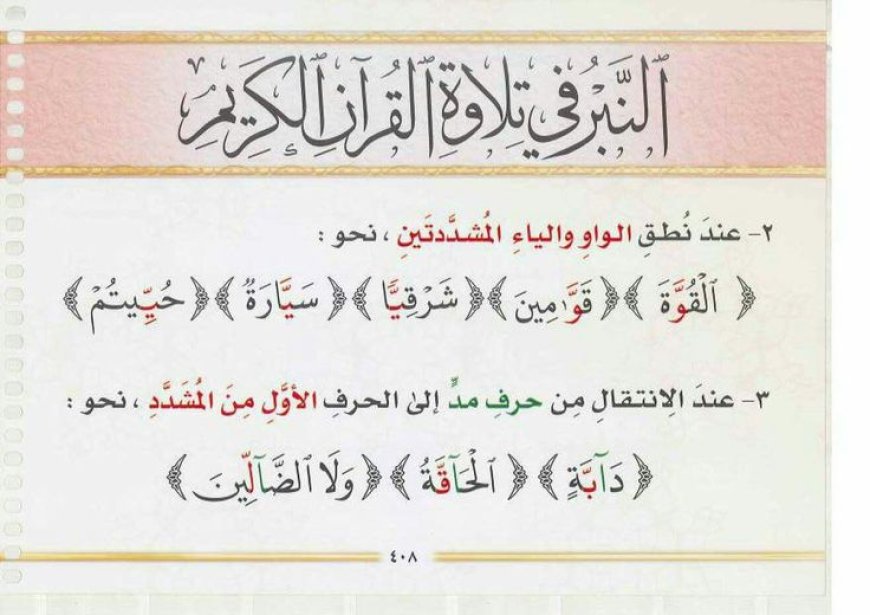 ٱلنَّبْرُ فِي تِلَاوَةِ ٱلْقُرْآنِ ٱلْكَرِيمِ
٢- عندَ نُطقِ الواوِ والياءِ المُشدَّدتَينِ ، نحو :
﴿ ٱلْقُوَّةَ ﴾ ﴿ قَوَّٰمِينَ ﴾ ﴿ شَرْقِيًّا ﴾ ﴿ سَيَّارَةٌ ﴾ ﴿ حُيِّيتُمْ ﴾
٣- عندَ الِانتقالِ مِن حرفِ مدٍّ إلىٰ الحرفِ الأوَّلِ مِنَ المُشَدَّدِ ، نحو :
﴿ دَآبَّةٍ ﴾ ﴿ ٱلْحَآقَّةُ ﴾ ﴿ وَلَا ٱلضَّآلِّينَ ﴾
٤٠٨